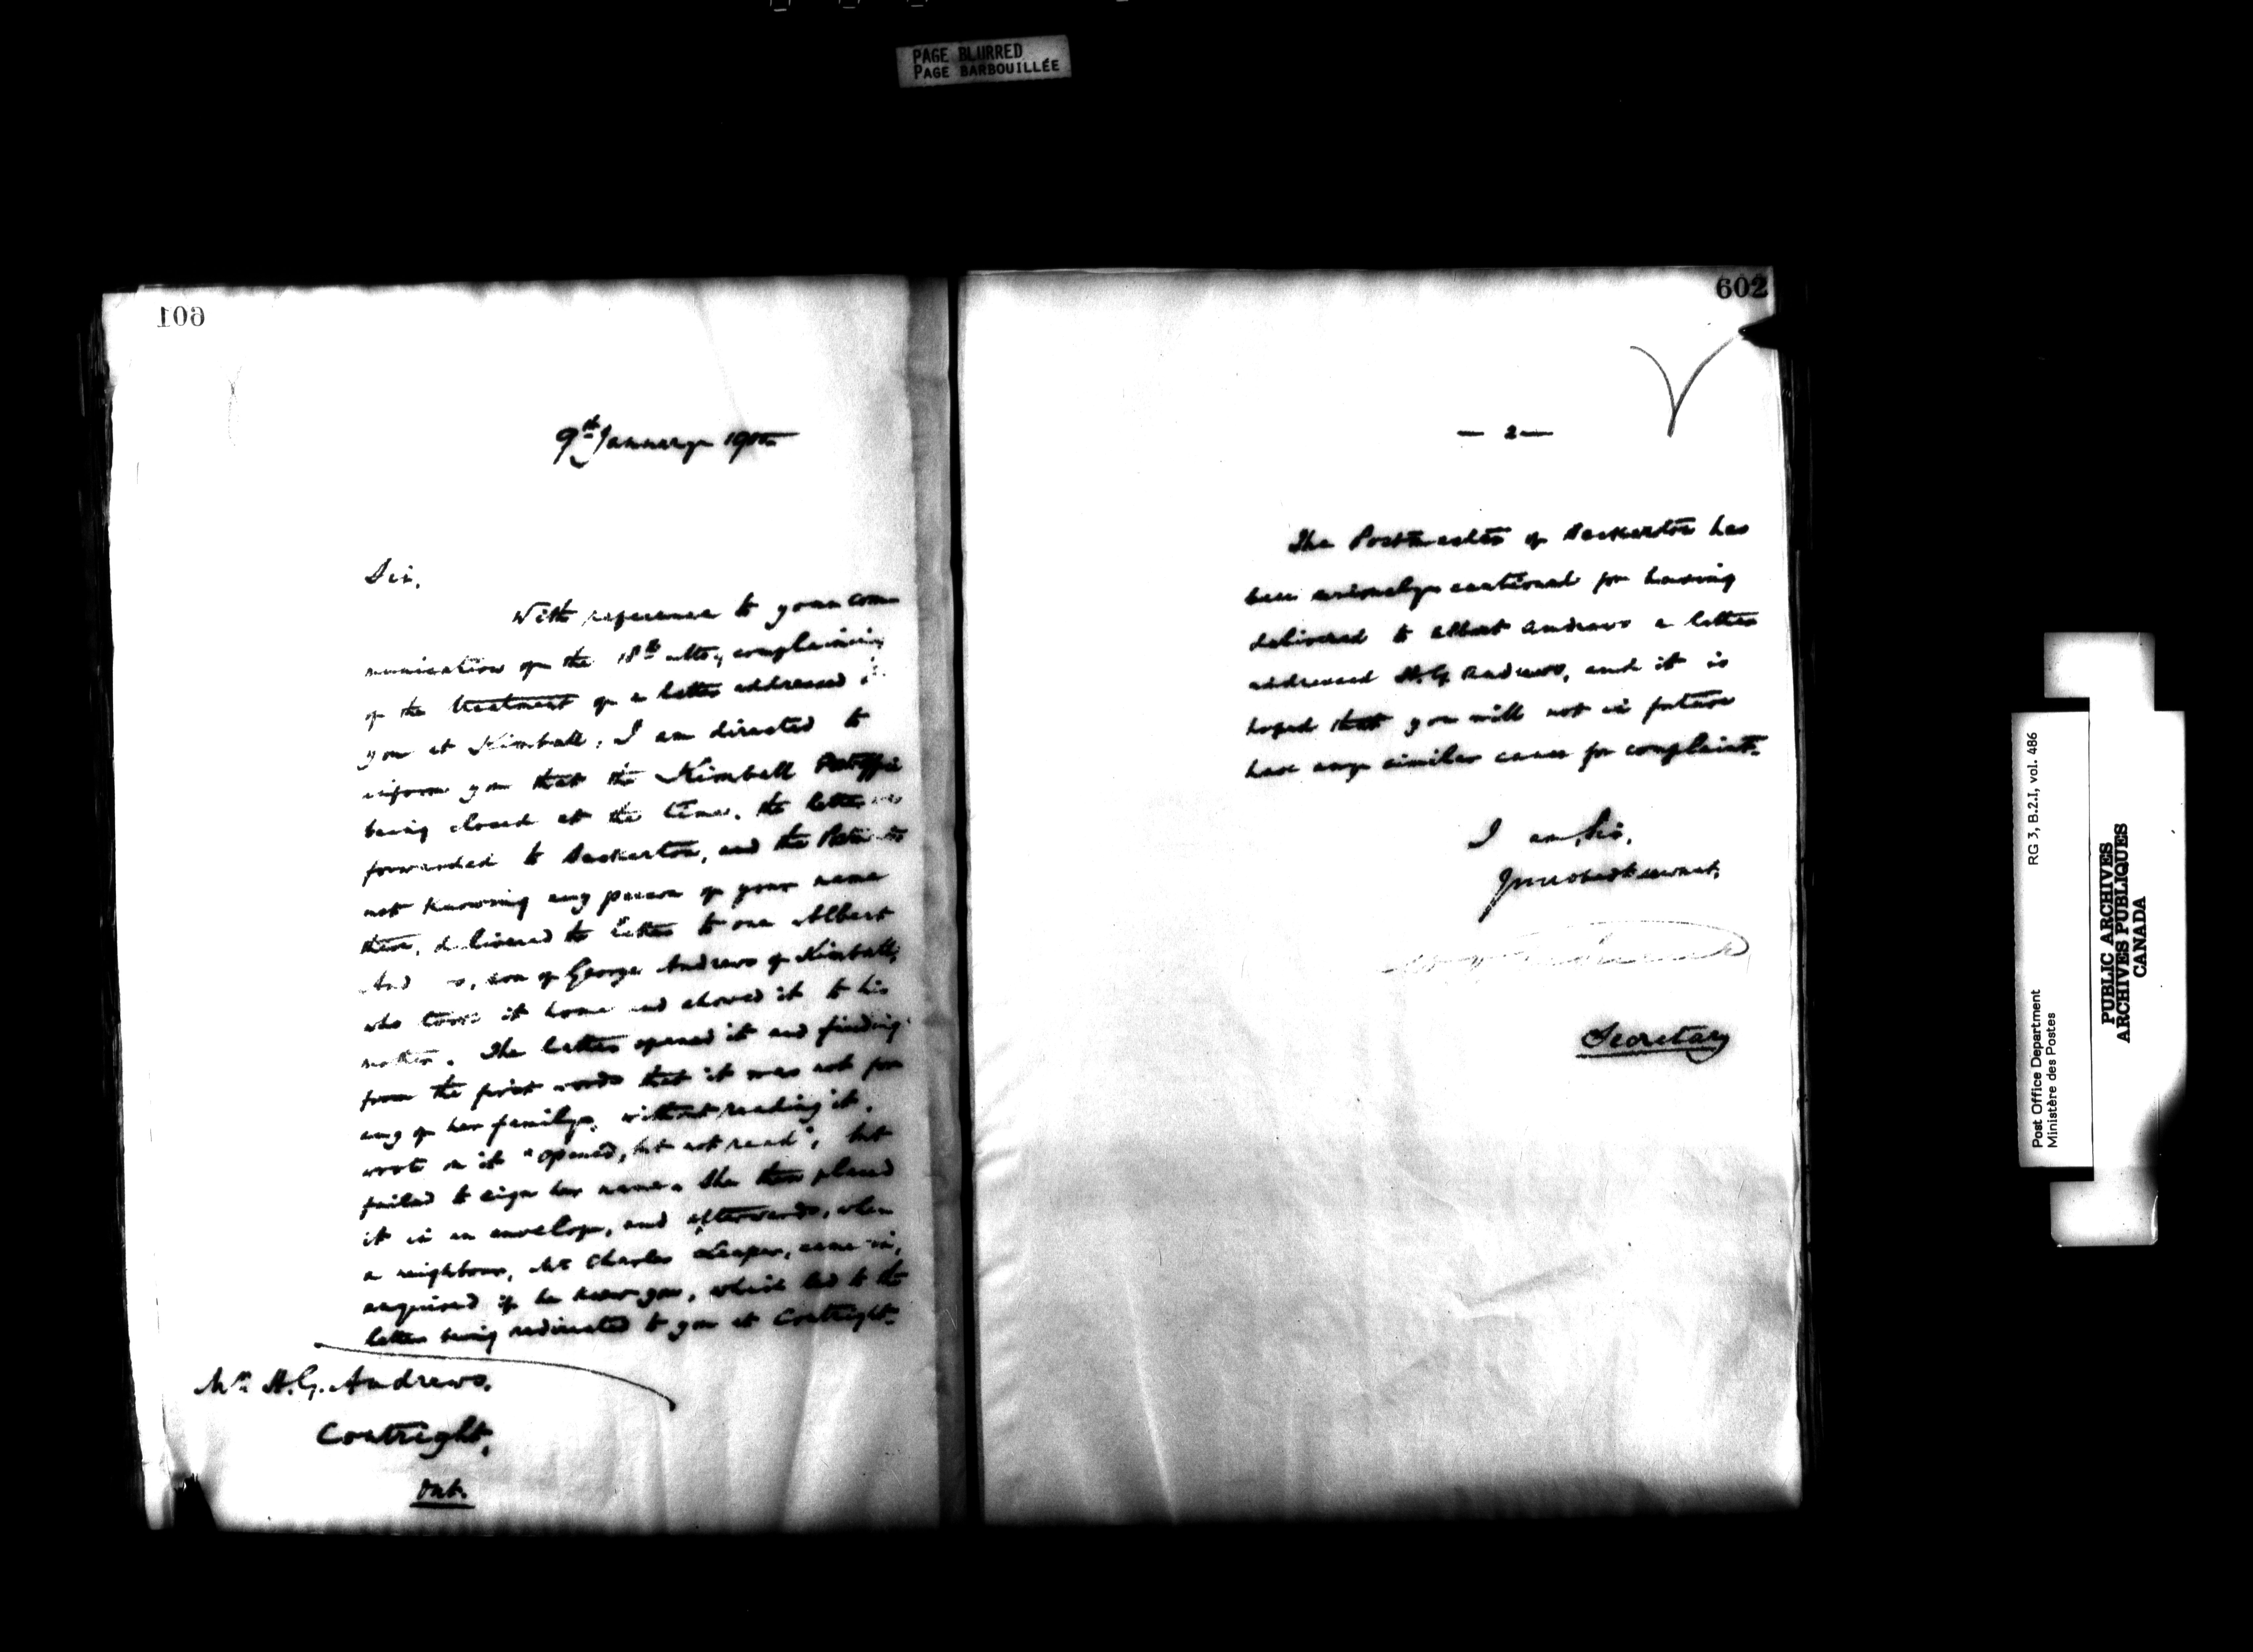 PAGE BLURRED
PAGE BARBOUILLÉE
601
9th January
Sir,
With reference to your com-
munication of the 18th ulto, complaining
of the treatment of a letter addressed
you at Kimball, I am directed to
inform you that the Kimball Postoffice
being closed at the time, the letter was
forwarded to Beckerton, and the
not knowing any person of your name
there, delivered the letter to one Albert
And s, son of George Andrews of Kimball,
who took it home and showed it to his
mother. The latter opened it and finding
from the first words that it was not for
any of her family, without reading it,
wrote on it "opened, but not read", but
failed to sign her name. She then placed
it in an envelope, and afterwards, when
a neighbour, Mr Charles Leaper, came in,
enquired if he knew you, which led to the
letter being redirected to you at Courtright.
Mr. H.G. Andrews,
Courtright,
Ont.
602
— 2 —
The Postmaster of Beckerton has
been seriously cautioned for having
delivered to Albert Andrews a letter
addressed H.G. Andrews, and it is
hoped that you will not in future
have any similar cause for complaint.
I am, Sir,
Your obedt servant,
Secretary
Post Office Department
Ministère des Postes
RG 3, B.2.I, vol. 486
PUBLIC ARCHIVES
ARCHIVES PUBLIQUES
CANADA